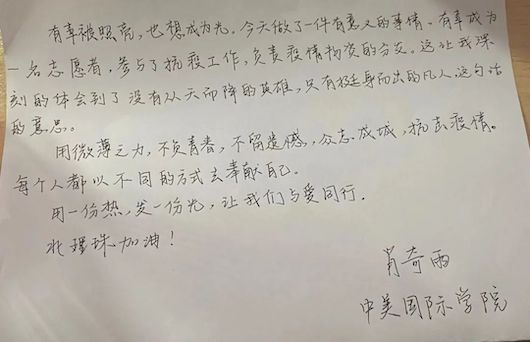 有幸被照亮，也想成为光。今天做了一件有意义的事情。有幸成为
一名志愿者，参与了抗疫工作，负责疫情物资的分发。这让我深
刻的体会到了没有从天而降的英雄，只有挺身而出的凡人这句话
的意思。
用微薄之力，不负青春，不留遗憾，众志成城，抗击疫情。
每个人都以不同的方式去奉献自己。
用一份热，发一份光，让我们与爱同行.
北璟珠加油！
肖奇雨
中美国际学院